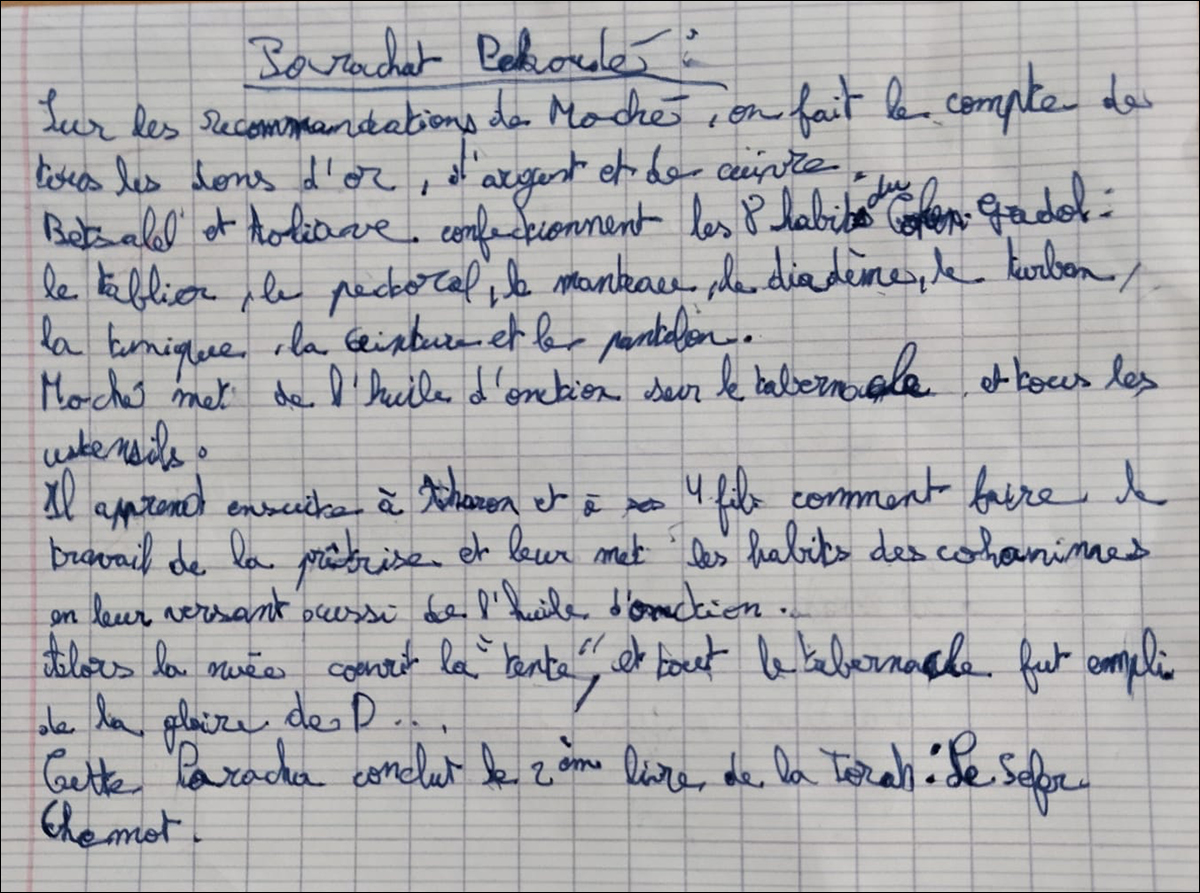 Parachat Pekoudé :
Sur les recommandations de Moché, on fait le compte de
tous les dons d'or, d'argent et de cuivre.
Betsalel et Aoliave confectionnent les 8 habits du Cohen Gadol :
le tablier, le pectoral, le manteau, le diadème, le turban,
la tunique, la ceinture et le pantalon.
Moché met de l'huile d'onction sur le tabernacle et tous les
ustensils.
Il apprend ensuite à Aharon et à ses 4 fils comment faire le
travail de la prêtrise et leur met les habits des cohanimes
en leur versant aussi de l'huile d'onction.
Alors la nuée couvrit la "tente", et tout le tabernacle fut empli
de la gloire de D...
Cette Paracha conclut le 2ème livre de la Torah : Le Sefer
Chemot.